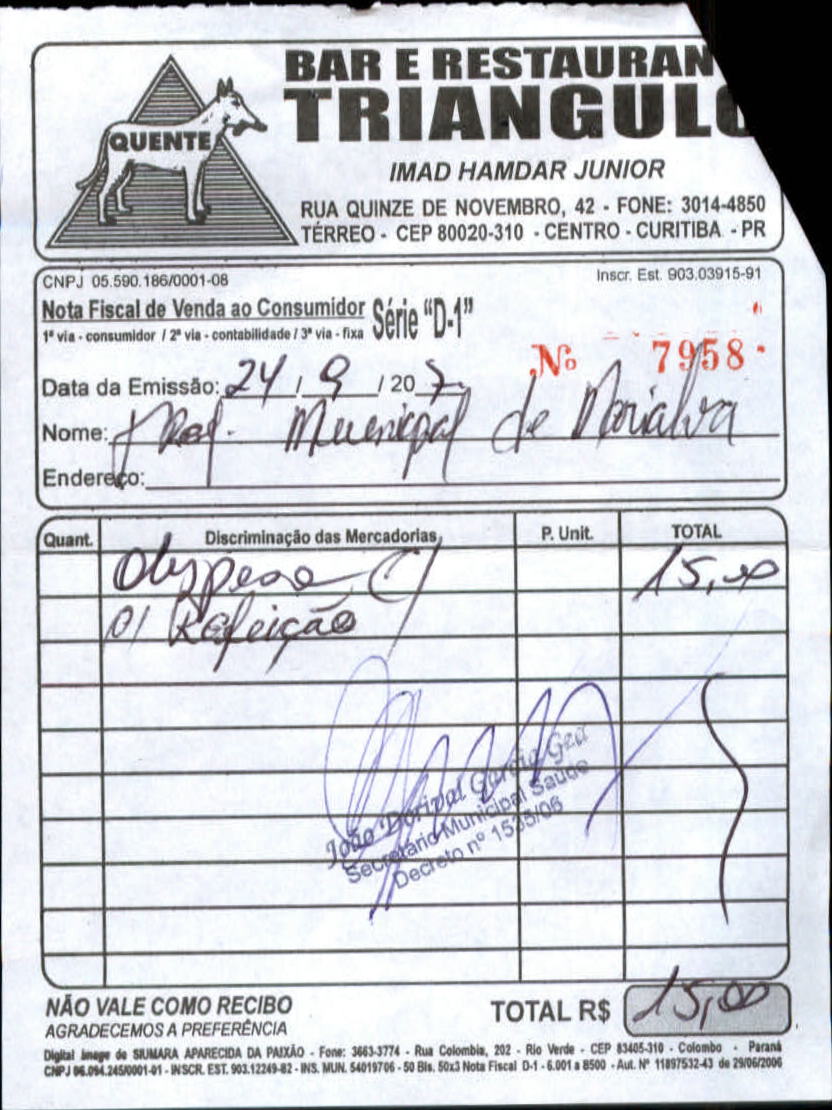 BAR E RESTAURAN
TRIANGULO
QUENTE
IMAD HAMDAR JUNIOR
RUA QUINZE DE NOVEMBRO, 42 - FONE: 3014-4850
TÉRREO - CEP 80020-310 - CENTRO - CURITIBA - PR
CNPJ 05.590.186/0001-08 Inscr. Est. 903.03915-91
Nota Fiscal de Venda ao Consumidor Série "D-1"
1ª via - consumidor / 2ª via - contabilidade / 3ª via - fixa
Nº 7958
Data da Emissão: 24 / 9 / 20 7
Nome: Pref. Municipal de Marialva
Endereço:
Quant. Discriminação das Mercadorias P. Unit. TOTAL
Despesa C/ 15,00
01 Refeição
João Dorival Garcia
Secretário Municipal Saúde
Decreto nº 1535/06
NÃO VALE COMO RECIBO
AGRADECEMOS A PREFERÊNCIA
TOTAL R$ 15,00
Digital Image de SIUMARA APARECIDA DA PAIXÃO - Fone: 3663-3774 - Rua Colombia, 202 - Rio Verde - CEP 83405-310 - Colombo - Paraná
CNPJ 06.094.245/0001-01 - INSCR. EST. 903.12249-82 - INS. MUN. 54019706 - 50 Bls. 50x3 Nota Fiscal D-1 - 6.001 a 8500 - Aut. Nº 11897532-43 de 29/06/2006